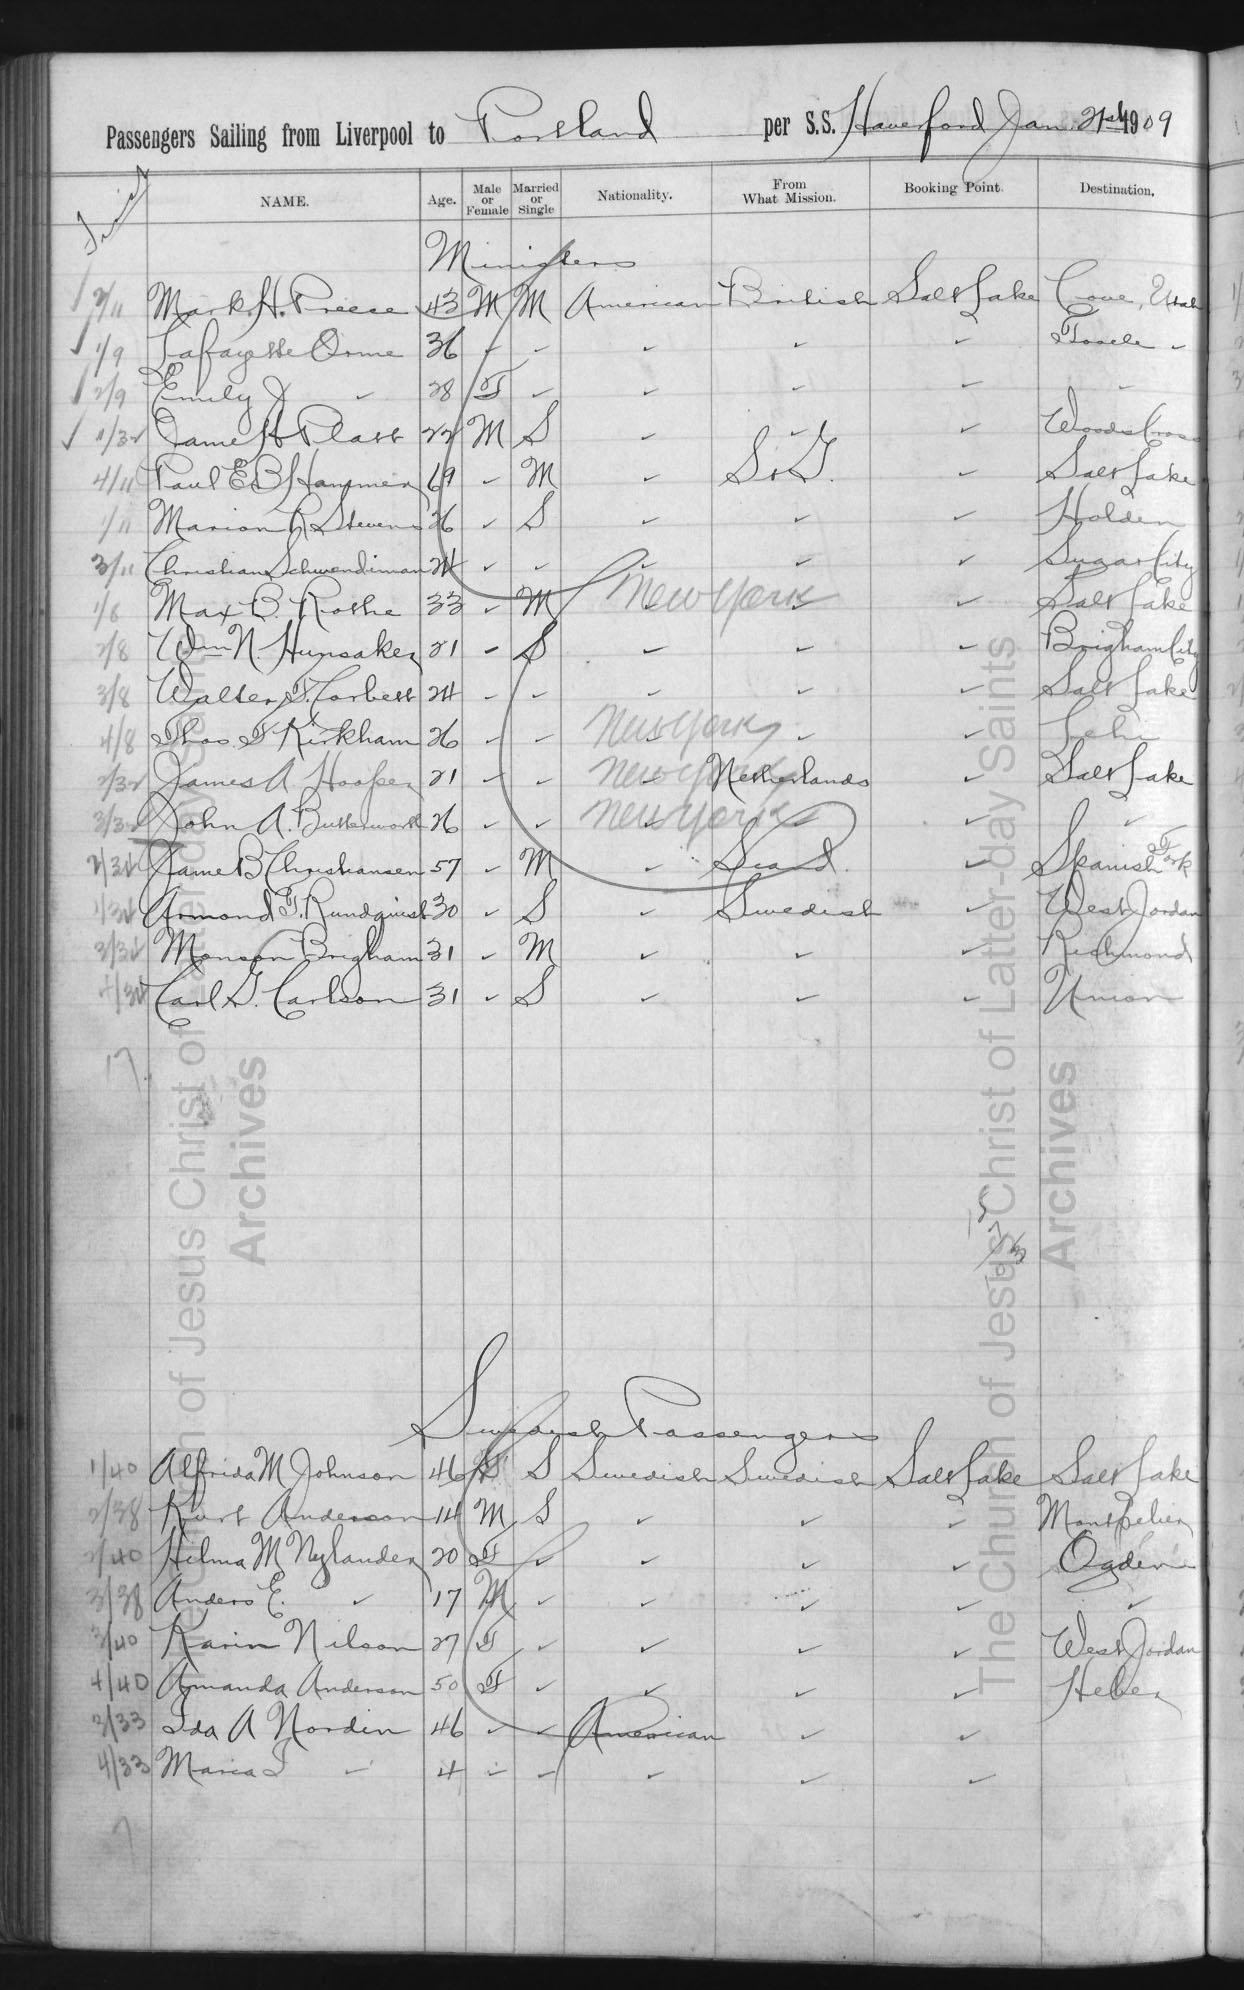 Passengers Sailing from Liverpool to Portland per S.S. Haverford Jan. 21st 1909
NAME. Age. Male or Female Married or Single Nationality. From What Mission. Booking Point. Destination.
Ministers
2/11 Mark H. Preece 43 M M American British Salt Lake Cove, Utah
1/9 Lafayette Orme 36 " " " " " Tooele "
2/9 Emily J " 28 F " " " " "
1/32 James H Platt 22 M S " " " Woods Cross
4/11 Paul E B Hammer 69 " M " S & G. " Salt Lake
1/11 Marion R Stevens 26 " S " " " Holden
3/11 Christian Schwendiman 24 " " " " " Sugar City
1/8 Max B. Rothe 33 " M New York " " Salt Lake
2/8 Wm N. Hunsaker 21 " S " " " Brigham City
3/8 Walter F. Corbett 24 " " " " " Salt Lake
4/8 Thos. F Kirkham 26 " " New York " " Lehi
2/32 James A Hooper 21 " " New York Netherlands " Salt Lake
3/32 John A. Butterworth 26 " " New York " " "
2/34 Jame B Christiansen 57 " M " Scand. " Spanish Fork
1/34 Armond F. Rundquist 30 " S " Swedish " West Jordan
3/34 Monson Brigham 31 " M " " " Richmond
4/34 Carl G. Carlson 31 " S " " " Union
17
Swedish Passengers
1/40 Alfrida M Johnson 46 F S Swedish Swedish Salt Lake Salt Lake
2/38 Kurt Anderson 14 M S " " " Montpelier
2/40 Hilma M Nylander 20 F " " " " Ogden
3/38 Anders E. " 17 M " " " " "
3/40 Karin Nilson 27 F " " " " West Jordan
4/40 Amanda Anderson 50 F " " " " Heber
2/33 Ida A Nordin 46 " " American " "
4/33 Maria I " 4 " " " " "
7
The Church of Jesus Christ of Latter-day Saints
Archives
The Church of Jesus Christ of Latter-day Saints
Archives